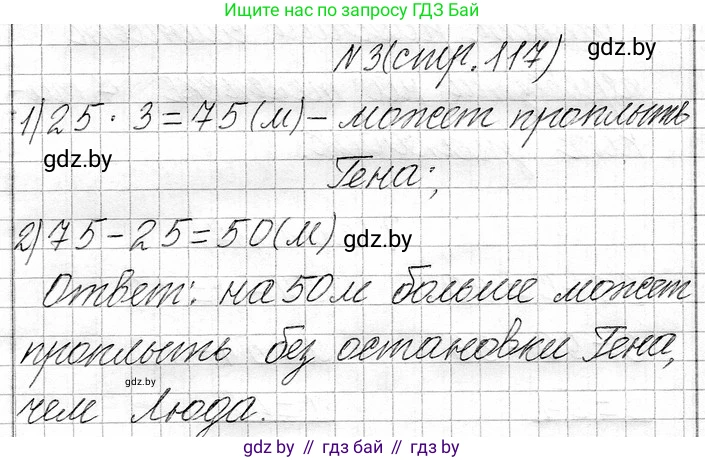 Ищите нас по запросу ГДЗ Бай
N3(стр.117) gdz.by
1) 25 · 3 = 75 (м) – может проплыть
gdz.by
Гена;
2) 75 – 25 = 50 (м) gdz.by
Ответ: на 50 м больше может
проплыть без остановки Гена,
gdz.by
чем Люда.
gdz.by // гдз бай // gdz.by